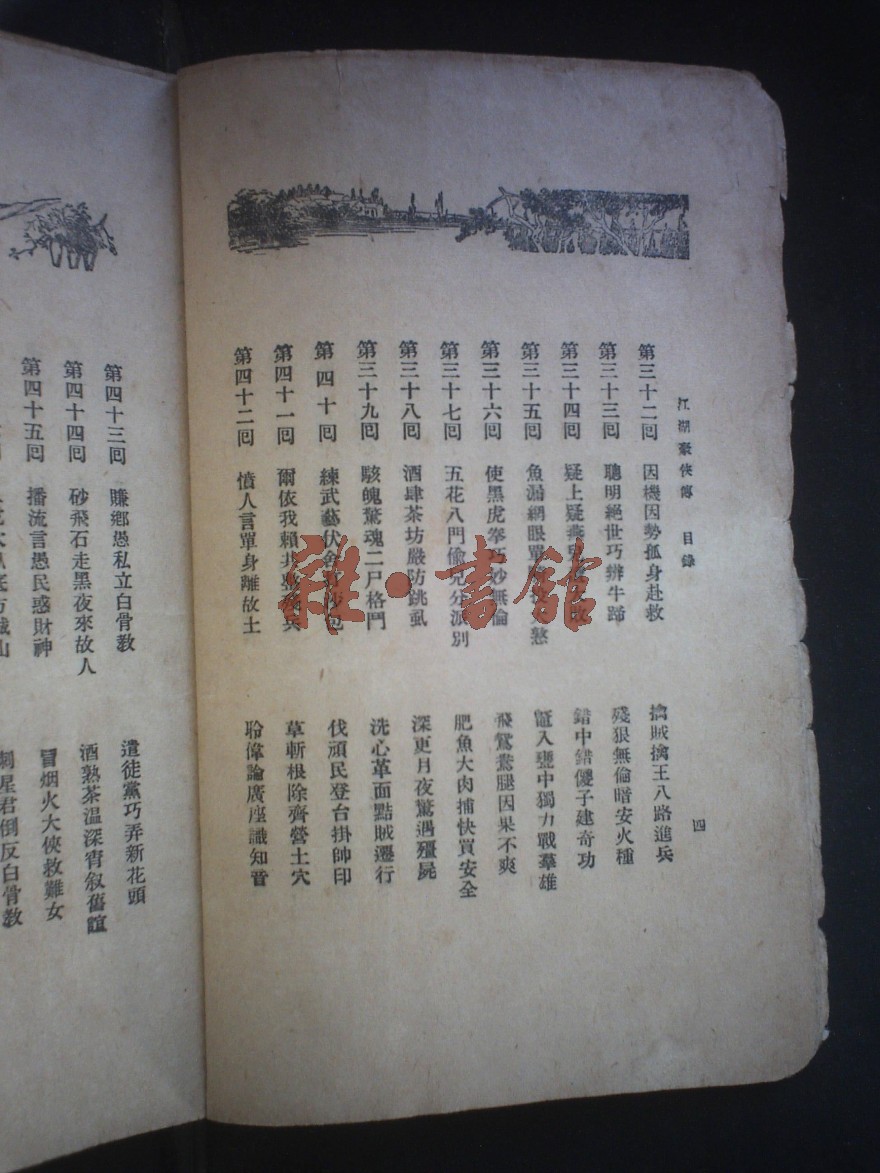 江湖豪俠傳 目錄
四
第三十二囘 因機因勢孤身赴救 擒賊擒王八路進兵
第三十三囘 聰明絕世巧辦牛蹄 殘狠無倫暗安火種
第三十四囘 疑上疑燕 錯中錯傻子建奇功
第三十五囘 魚漏網眼單 憨 甕入甕中獨力戰羣雄
第三十六囘 使黑虎拳巧妙無倫 飛鴛鴦腿因果不爽
第三十七囘 五花八門偷兒分派別 肥魚大肉捕快買安全
第三十八囘 酒肆茶坊嚴防跳虱 深更月夜驚遇殭屍
第三十九囘 駭魄驚魂二尸格鬥 洗心革面點賊遷行
第四十囘 練武藝伏舍 沙包 伐頑民登台掛帥印
第四十一囘 爾依我賴共 兵 草斬根除齊營土穴
第四十二囘 憤人言單身離故土 聆偉論廣座識知音
第四十三囘 賺鄉愚私立白骨教 遣徒黨巧弄新花頭
第四十四囘 砂飛石走黑夜來故人 酒熟茶温深宵叙舊誼
第四十五囘 播流言愚民惑財神 冒烟火大俠救難女
星君倒反白骨教
雜·書館